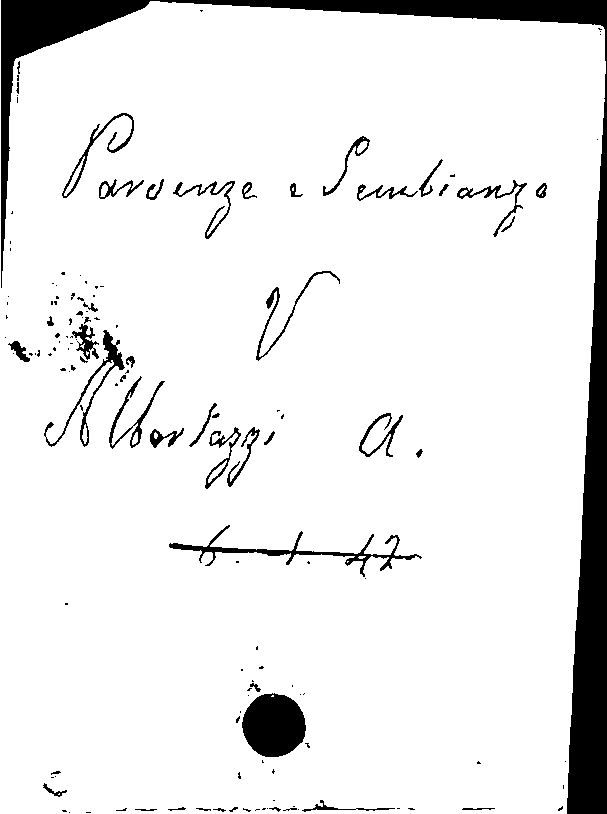 Parvenze e Sembianze
V
Albertazzi A.
6. 1. 42